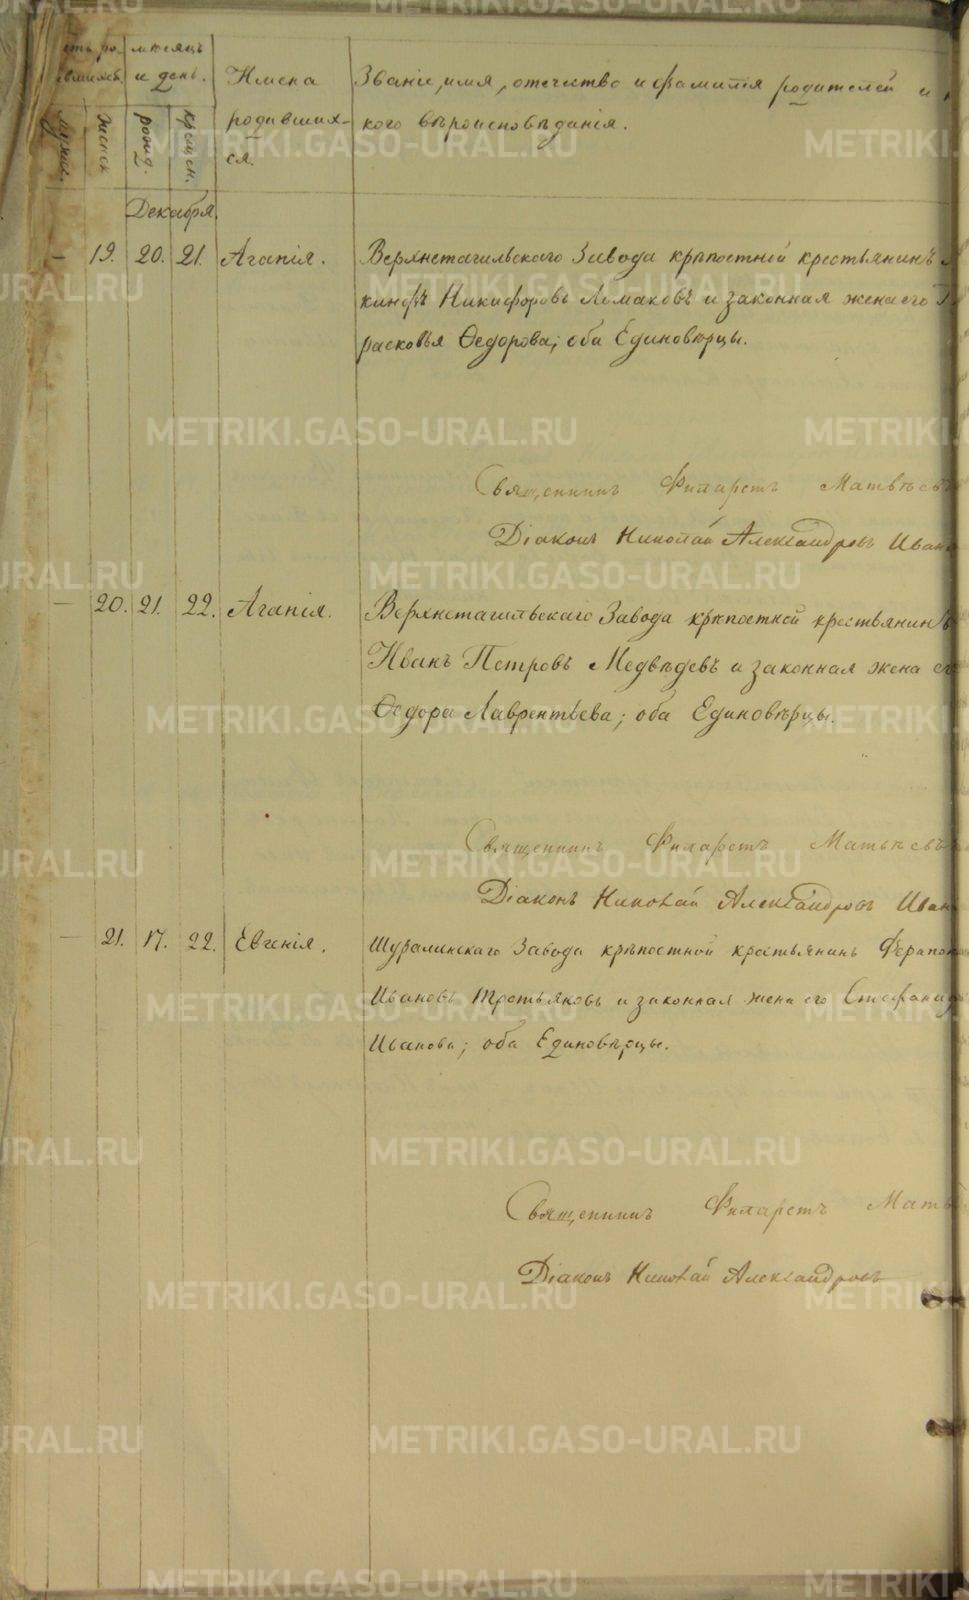 мѣсяцъ
и день.
Имена
родивших-
ся.
Званіе, имя, отечество и фамилія родителей и
кого вѣроисповѣданія.
женск
рожд.
крещен.
Декабря.
19. 20. 21. Агапія. Верхнетагильскаго Завода крѣпостной крестьянинъ
кинфъ Никифоровъ Ломаковъ и законная жена его
расковья Ѳедорова; оба Единовѣрцы.
Священникъ Филаретъ Матвѣевъ
Діаконъ Николай Александровъ Иван
— 20. 21. 22. Агапія. Верхнетагильскаго Завода крѣпостной крестьянинъ
Иванъ Петровъ Медвѣдевъ и законная жена ег
Ѳедора Лаврентьева; оба Единовѣрцы.
Священникъ Филаретъ Матвѣевъ
Діаконъ Николай Александровъ Иван
— 21. 17. 22. Евгенія. Шуралинскаго Завода крѣпостной крестьянинъ Ферапон
Ивановъ Третьяковъ и законная жена его Стефанида
Иванова; оба Единовѣрцы.
Священникъ Филаретъ Матв
Діаконъ Николай Александровъ
METRIKI.GASO-URAL.RU